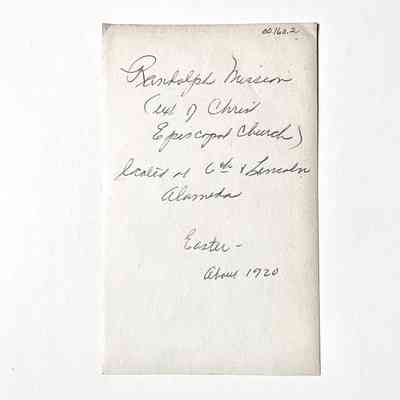 00.160.2
Randolph Mission
(ext of Christ
Episcopal Church)
Located at 6th & Lincoln
Alameda
Easter -
About 1920